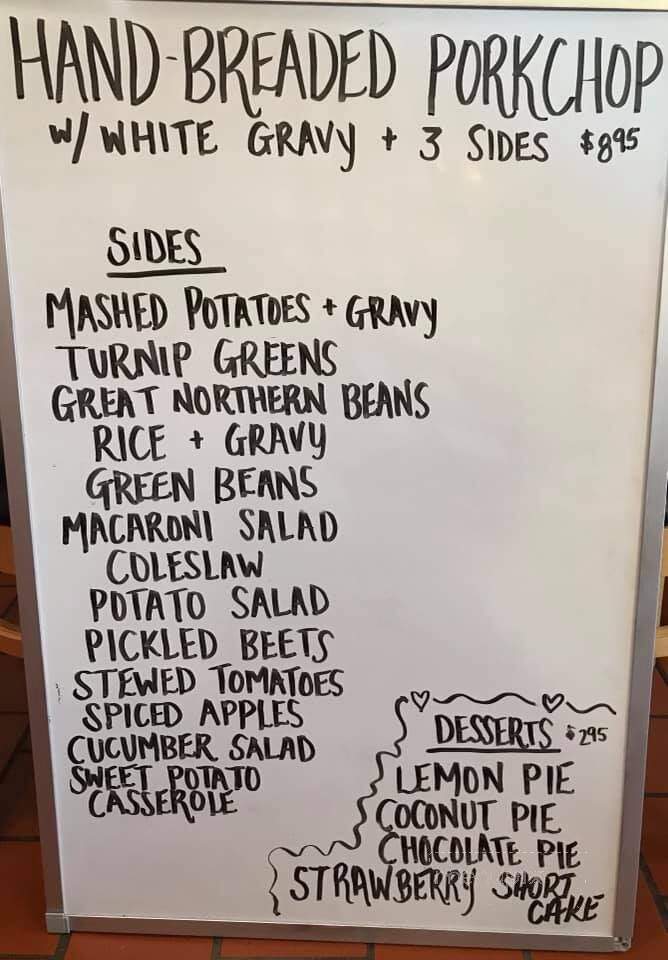 HAND-BREADED PORKCHOP
W/ WHITE GRAVY + 3 SIDES $895
SIDES
MASHED POTATOES + GRAVY
TURNIP GREENS
GREAT NORTHERN BEANS
RICE + GRAVY
GREEN BEANS
MACARONI SALAD
COLESLAW
POTATO SALAD
PICKLED BEETS
STEWED TOMATOES
SPICED APPLES
CUCUMBER SALAD
SWEET POTATO
CASSEROLE
DESSERTS $295
LEMON PIE
COCONUT PIE
CHOCOLATE PIE
STRAWBERRY SHORT
CAKE